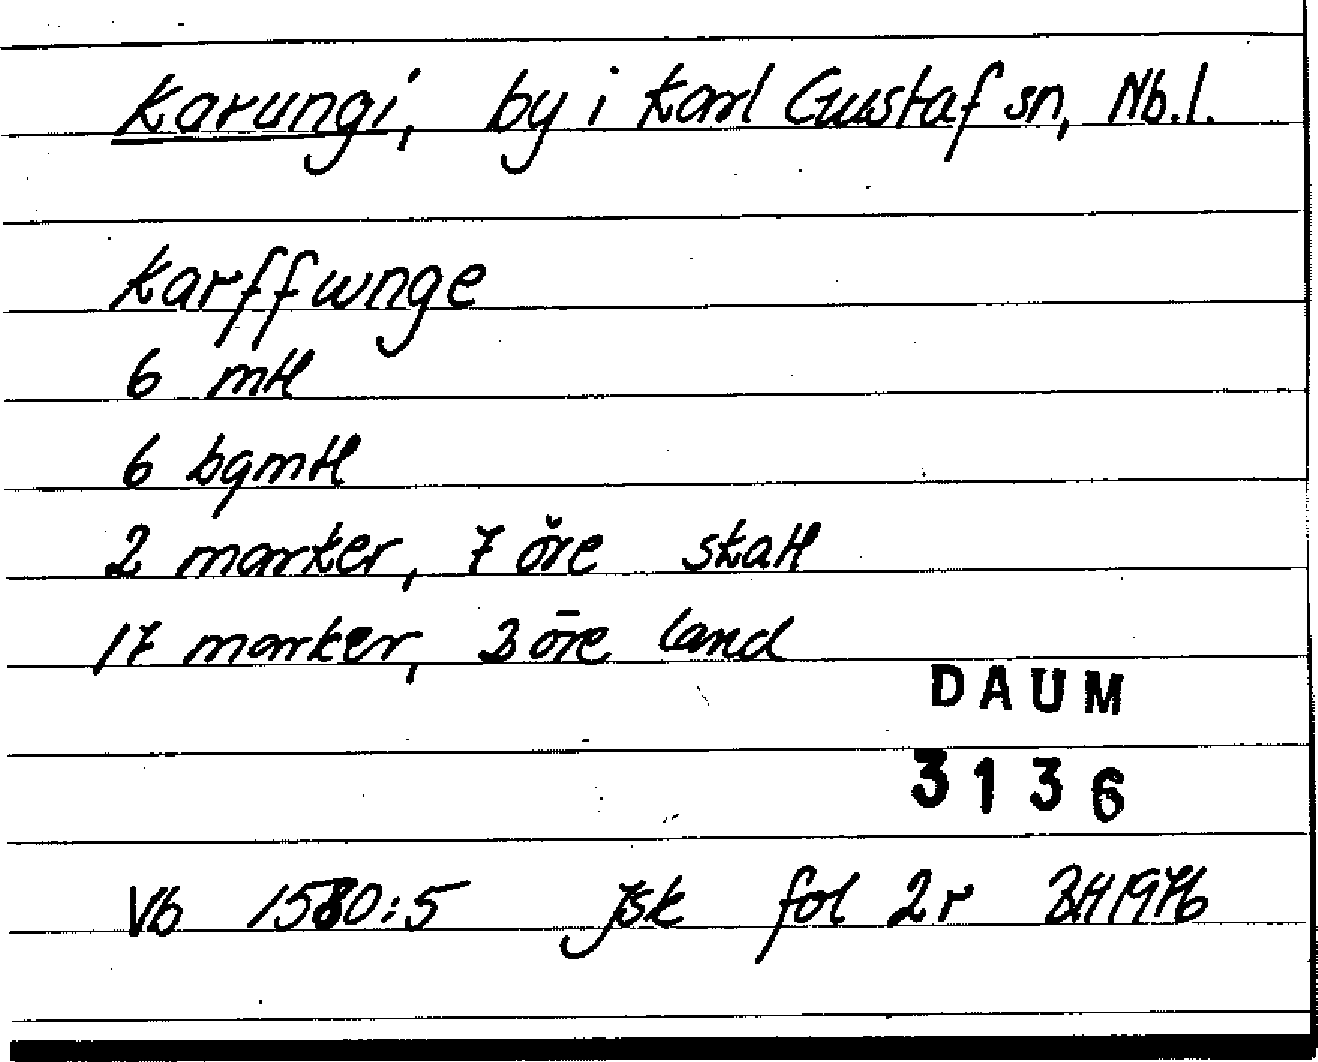 Karungi, by i Karl Gustaf sn, Nb.l.
Karffwnge
6 mtl
6 bgmtl
2 marker, 7 öre skatt
17 marker, 3 öre land
DAUM
3136
Vb 1580:5 Jsk fol 2r BH 1976